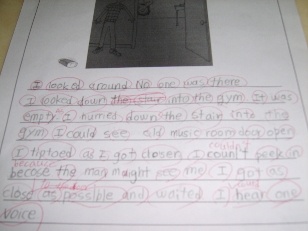 I looked around No one was there
I looked down the stair into the gym It was
empty I hurried down the stair into the
gym I could see old music room door open
I tiptoed as I got closer I coun't peek in
couldn't
because
becose the man mought see me I got as
close as possible and waited I hear one
Voice